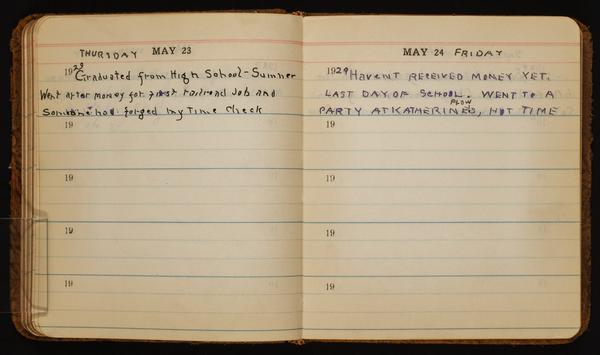 THURSDAY MAY 23
1929 Graduated from High School - Sumner
Went after money for first railroad Job and
Someone had forged my Time Check
19
19
19
19
MAY 24 FRIDAY
1929 HAVENT RECEIVED MONEY YET.
LAST DAY OF SCHOOL. WENT TO A
PARTY AT KATHERINE PLOWES, HOT TIME
19
19
19
19